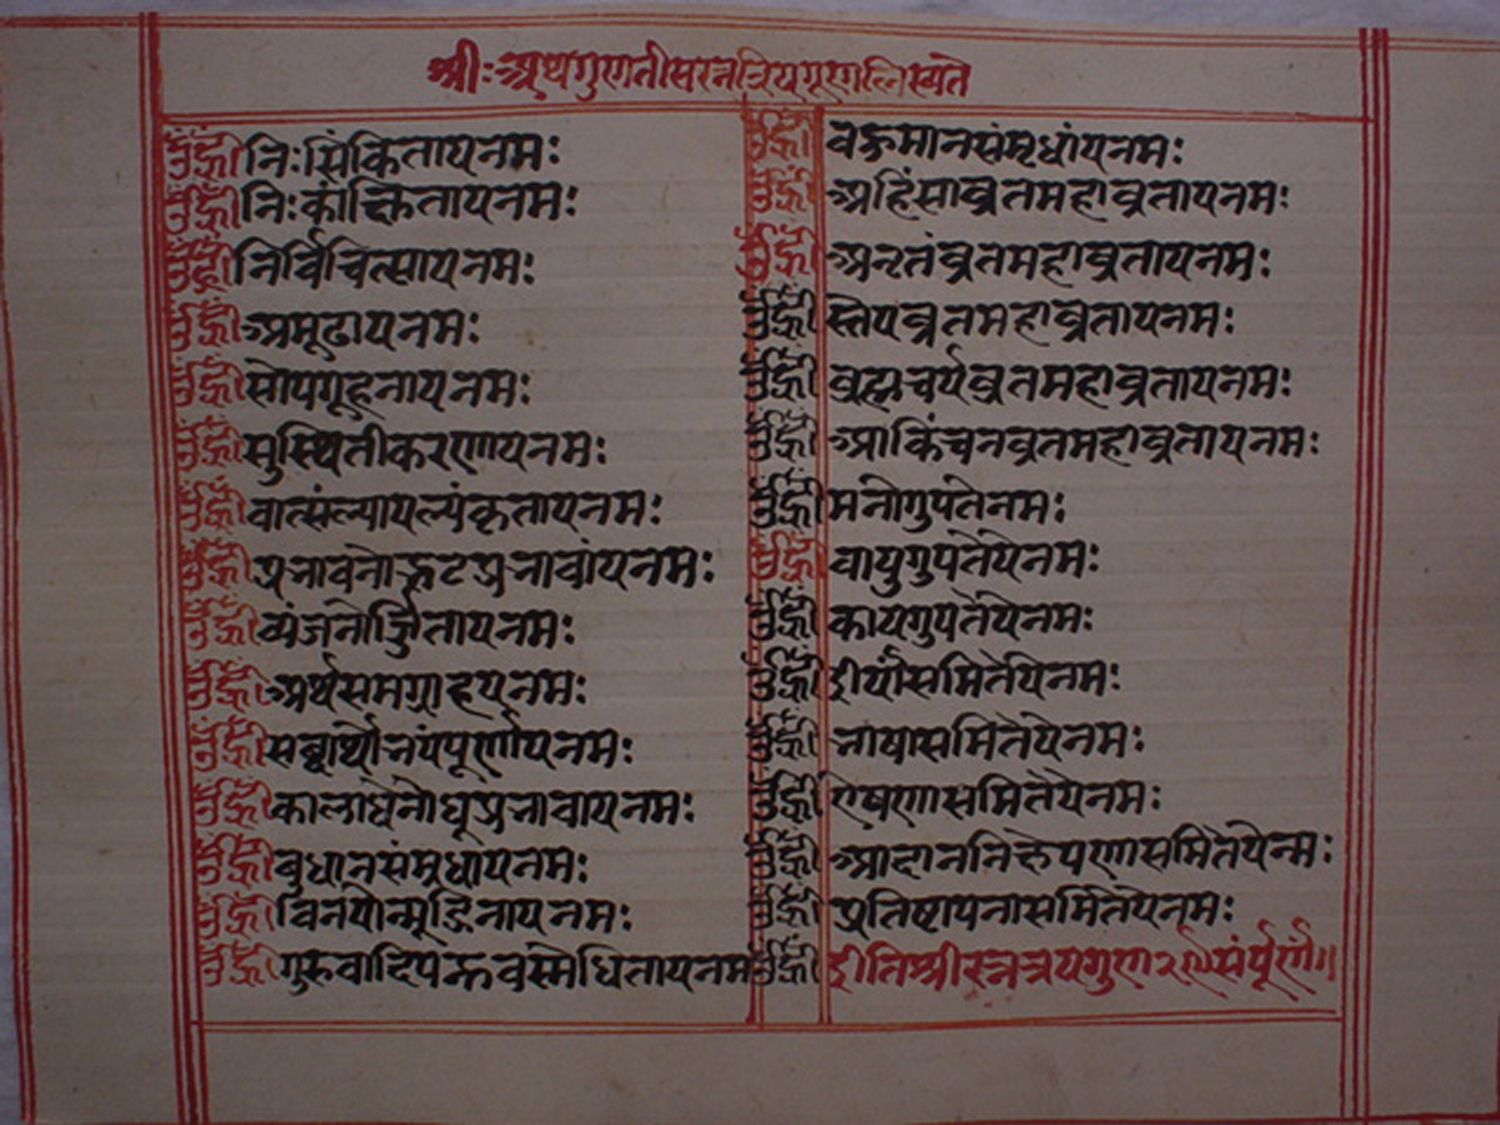 श्रीः अथ गुणतीस रनत्रियगुण लिख्यते
ॐ ह्रीं निःसंकिताय नमः
ॐ ह्रीं निःकांक्षिताय नमः
ॐ ह्रीं निर्विचित्साय नमः
ॐ ह्रीं अमूढाय नमः
ॐ ह्रीं सोपगूहनाय नमः
ॐ ह्रीं सुस्थितीकरणाय नमः
ॐ ह्रीं नमः
ॐ ह्रीं नमः
ॐ ह्रीं व्यंजनोर्जिताय नमः
ॐ ह्रीं अर्थसमग्राहय नमः
ॐ ह्रीं नमः
ॐ ह्रीं नमः
ॐ ह्रीं बुधानसंमुधाय नमः
ॐ ह्रीं नमः
ॐ ह्रीं नम
ॐ ह्रीं नमः
ॐ ह्रीं अहिंसाव्रतमहाव्रताय नमः
ॐ ह्रीं अनतंव्रतमहाव्रताय नमः
ॐ ह्रीं स्तेयव्रतमहाव्रताय नमः
ॐ ह्रीं ब्रह्मचर्यव्रतमहाव्रताय नमः
ॐ ह्रीं आकिंचनव्रतमहाव्रताय नमः
ॐ ह्रीं मनोगुपतेनमः
ॐ ह्रीं वायुगुपतेयेनमः
ॐ ह्रीं कायगुपतेयेनमः
ॐ ह्रीं ईर्यासमितेयेनमः
ॐ ह्रीं भाषासमितेयेनमः
ॐ ह्रीं ऐषणासमितेयेनमः
ॐ ह्रीं आदाननिक्षेपणासमितेयेन्मः
ॐ ह्रीं प्रतिष्टापनासमितेयेनमः
ॐ ह्रीं ईतिश्रीरत्नत्रयगुण२९संपूर्णं॥